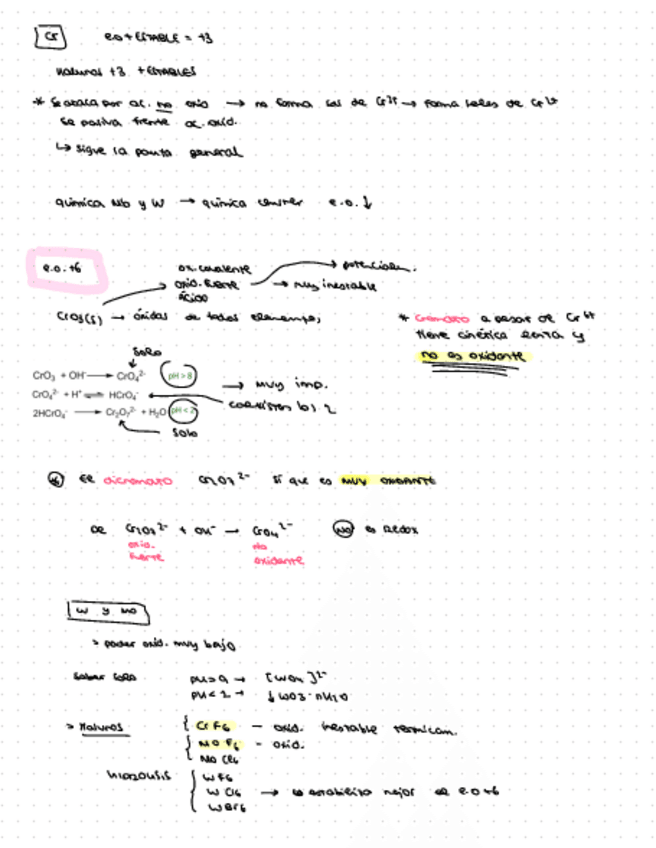 Cr e.o + ESTABLE = +3
Haluros +3 + ESTABLES
* Se ataca por ac. no oxid → no forma sal de Cr3+ → forma sales de Cr2+
Se pasiva frente ac. oxid.
↳ sigue la pauta general
química Mo y W → química e.o. ↓
e.o. +6
ox. covalente
oxid. fuerte → muy inestable
ácido
→ potencian.
CrO3(s) → óxidos de todos elementos
* Cromato a pesar de Cr6+
tiene cinética lenta y
no es oxidante
SOLO
CrO3 + OH- → CrO4 2- pH > 8
CrO4 2- + H+ ⇌ HCrO4-
2HCrO4- → Cr2O7 2- + H2O pH < 2
SOLO
→ muy imp.
coexisten los 2
El dicromato Cr2O7 2- sí que es MUY OXIDANTE
De Cr2O7 2- + OH- → CrO4 2- NO es REDOX
oxid. fuerte
no oxidante
W y Mo
> poder oxid. muy bajo
Saber solo pH > 9 → [WO4]2-
pH < 2 → ↓ WO3·nH2O
> Haluros CrF6 – oxid. inestable térmicam.
MoF6 – oxid.
MoCl6
hidrólisis WF6
WCl6 → se estabiliza mejor el e.o +6
WBr6